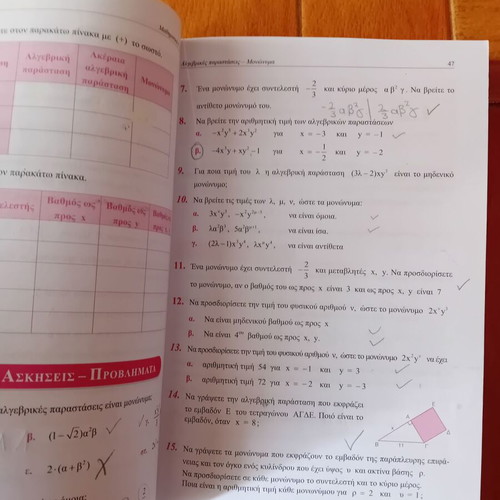 τε στον παρακάτω πίνακα με (+) το σωστό.
Αλγεβρική παράσταση
Ακέραια αλγεβρική παράσταση
Μονώνυμο
ον παρακάτω πίνακα.
τελεστής
Βαθμός ως προς x
Βαθμός ως προς y
ΑΣΚΗΣΕΙΣ – ΠΡΟΒΛΗΜΑΤΑ
αλγεβρικές παραστάσεις είναι μονώνυμο
β. (1–√2)α²β
ε. 2·(α+β²)
Αλγεβρικές παραστάσεις – Μονώνυμα 47
7. Ένα μονώνυμο έχει συντελεστή –2/3 και κύριο μέρος αβ²γ. Να βρείτε το
αντίθετο μονώνυμό του.
8. Να βρείτε την αριθμητική τιμή των αλγεβρικών παραστάσεων
για x = –3 και y = –1
για x = –1/2 και y = –2
9. Για ποια τιμή του λ η αλγεβρική παράσταση (3λ – 2)xy³ είναι το μηδενικό
μονώνυμο;
10. Να βρείτε τις τιμές των λ, μ, ν, ώστε τα μονώνυμα:
να είναι όμοια.
να είναι ίσα.
να είναι αντίθετα
11. Ένα μονώνυμο έχει συντελεστή –2/3 και μεταβλητές x, y. Να προσδιορίσετε
το μονώνυμο, αν ο βαθμός του ως προς x είναι 3 και ως προς x, y είναι 7
12. Να προσδιορίσετε την τιμή του φυσικού αριθμού ν, ώστε το μονώνυμο
α. Να είναι μηδενικού βαθμού ως προς x
β. Να είναι 4ου βαθμού ως προς x, y.
13. Να προσδιορίσετε την τιμή του φυσικού αριθμού ν, ώστε το μονώνυμο να έχει
α. αριθμητική τιμή 54 για x = –1 και y = 3
β. αριθμητική τιμή 72 για x = –2 και y = –3
14. Να γράψετε την αλγεβρική παράσταση που εκφράζει
το εμβαδόν Ε του τετραγώνου ΑΓΔΕ. Ποιό είναι το
εμβαδόν, όταν x = 8;
15. Να γράψετε τα μονώνυμα που εκφράζουν το εμβαδόν της παράπλευρης επιφά-
νειας και τον όγκο ενός κυλίνδρου που έχει ύψος υ και ακτίνα βάσης ρ.
Να προσδιορίσετε σε κάθε μονώνυμο το συντελεστή και το κύριο μέρος.
Ποια είναι η αριθμητική τιμή κάθε μονωνύμου για ρ = 2 και υ = 1;